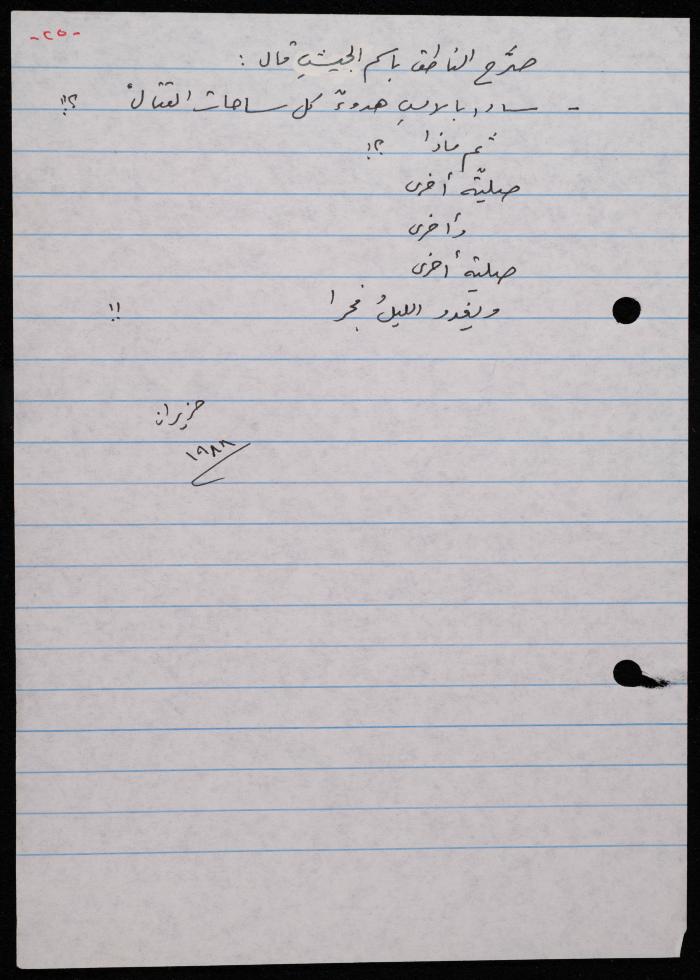 -٢٥-
صرَّح الناطق باسم الجيشِ قال :
- ساد بالامسِ هدوءٌ كل ساحات القتالْ ؟!!
ثم ماذا ؟!
صليّة أخرى
وأخرى
صلية أخرى
ويغدو الليلُ فجرا !!
حزيران
١٩٨٨